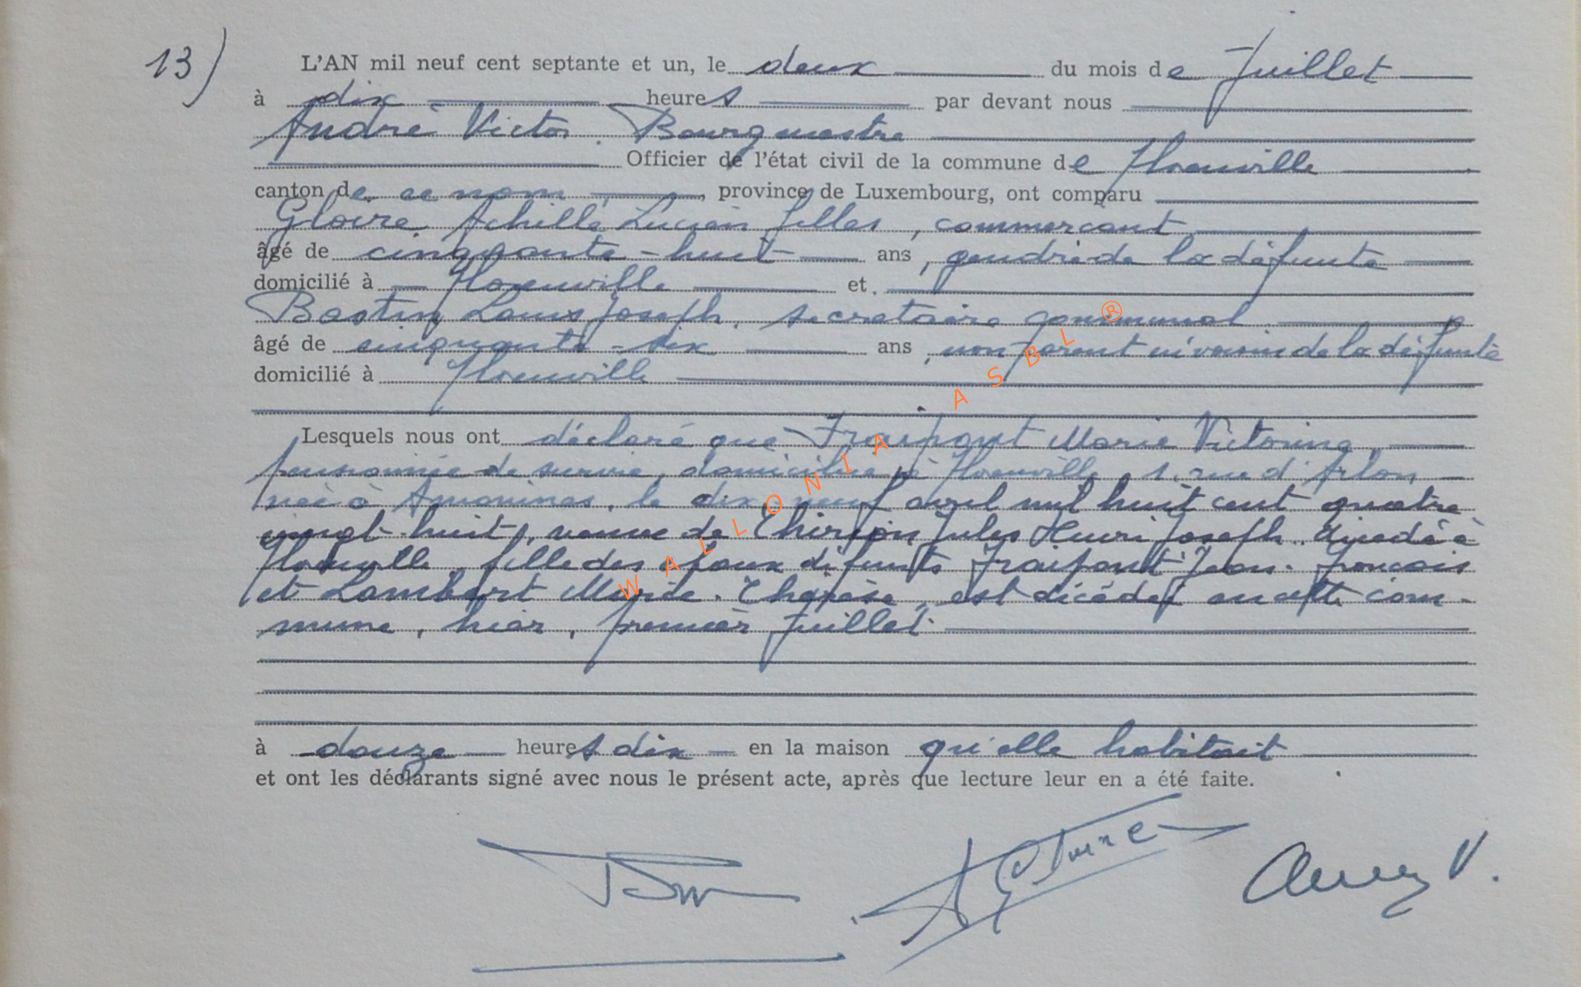 13)
L'AN mil neuf cent septante et un, le deux du mois de Juillet
à dix heures par devant nous
André Victor. Bourgmestre
Officier de l'état civil de la commune de Florenville
canton de ce nom, province de Luxembourg, ont comparu
Gloire Achille Lucien Gilles, commerçant
âgé de cinquante-huit ans, gendre de la défunte
domicilié à Florenville et
Bastin Louis Joseph, secrétaire communal
âgé de cinquante-six ans, non parent ni voisin de la défunte
domicilié à Florenville
Lesquels nous ont déclaré que Fraipont Marie Victorine,
pensionnée de survie, domiciliée à Florenville, 1, rue d'Arlon,
née à Amonines, le dix-neuf avril mil huit cent quatre
vingt-huit, veuve de Thirion Jules Henri Joseph, décédé à
Florenville, fille des époux défunts Fraipont Jean-François
et Lambert Marie-Thérèse, est décédée en cette com-
mune, hier, premier juillet
à douze heures dix en la maison qu'elle habitait
et ont les déclarants signé avec nous le présent acte, après que lecture leur en a été faite.
A Gloire
V.
WALLONIA ASBL ®